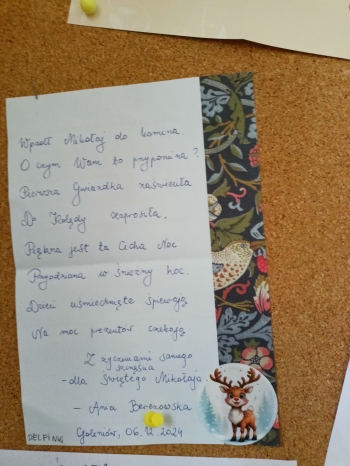 Wpadł Mikołaj do komina.
O czym Wam to przypomina?
Pierwsza Gwiazdka zaświeciła
Do Kolędy zaprosiła.
Piękna jest ta Cicha Noc
Przyodziana w śnieżny koc.
Dzieci uśmiechnięte śpiewają
Na moc prezentów czekają
Z życzeniami samego
szczęścia
- dla Świętego Mikołaja.
- Ania Berezowska
Goleniów, 06.12.2024